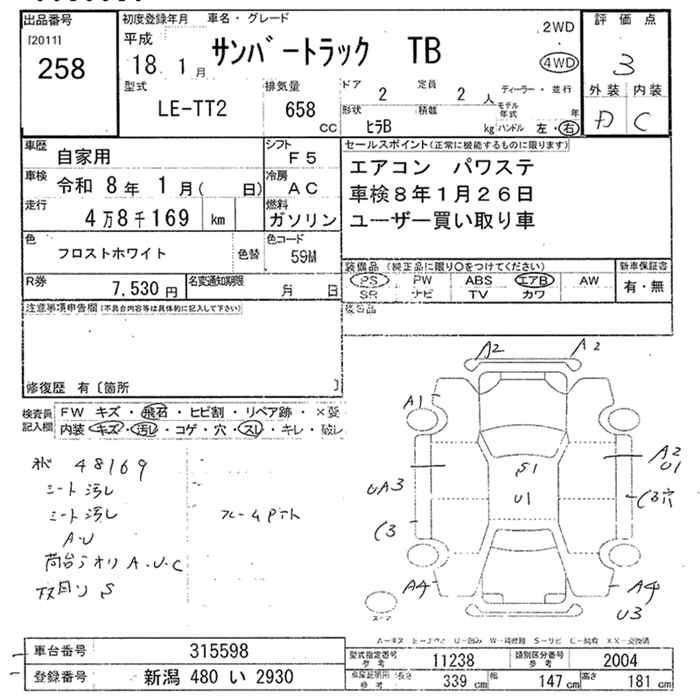 出品番号
[2011]
258
初度登録年月 車名・グレード
平成
18 . 1 月
サンバートラック TB
2WD
4WD
評価点
3
外装 内装
D C
型式
LE-TT2
排気量
658 CC
ドア 2
定員 2 人
形状 ヒラB
積載 kg
ディーラー・並行
モデル年式 年
ハンドル 左・右
車歴 自家用
シフト F5
車検 令和 8年 1月( 日)
冷房 AC
走行 4万8千169 km
燃料 ガソリン
色 フロストホワイト 色替
色コード 59M
R券 7,530 円
名変通知期限 月 日
セールスポイント(正常に機能するものに限ります)
エアコン パワステ
車検8年1月26日
ユーザー買い取り車
装備品(純正品に限り○をつけてください)
PS PW ABS エアB AW
SR ナビ TV カワ
新車保証書
有・無
後日品
注意事項申告欄(不具合内容等は具体的に記入して下さい)
修復歴 有〔箇所 〕
検査員記入欄
FW キズ・飛石・ヒビ割・リペア跡・×要
内装 キズ・汚レ・コゲ・穴・スレ・キレ・破レ
48169
シート汚レ
シート汚レ
A.U
荷台アオリ A.U.C
下回り S
A2 A2
A1
A2
U1
S1
U1
UA3
C3
C3穴
A4
A4
U3
車台番号 315598
登録番号 新潟 480 い 2930
型式指定番号 参考 11238
類別区分番号 参考 2004
車庫証明用 参考 長さ 339 cm 幅 147 cm 高さ 181 cm